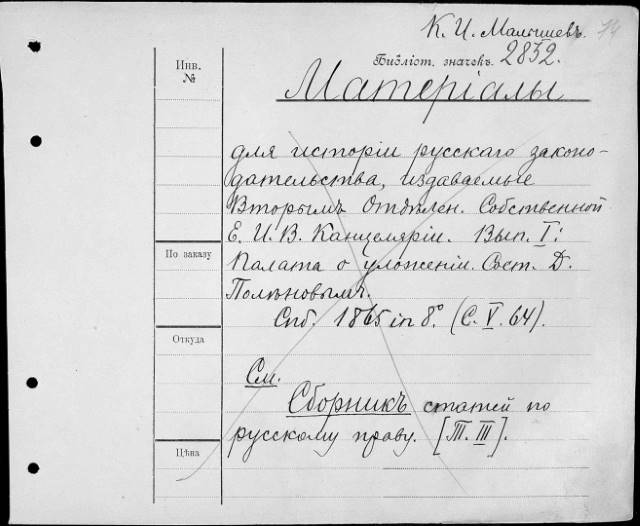 К. И. Малышевъ. 74
Библіот. значекъ. 2832.
Инв.
№
Матеріалы
для исторіи русскаго законо-
дательства, издаваемые
Вторымъ Отдѣлен. Собственной
Е. И. В. Канцеляріи. Вып. I:
Палата о уложеніи. Сост. Д.
Полѣновымъ.
Спб. 1865 in 8°. (С. V. 64).
По заказу
Откуда
См.
Сборникъ статей по
русскому праву. [Т. III].
Цѣна